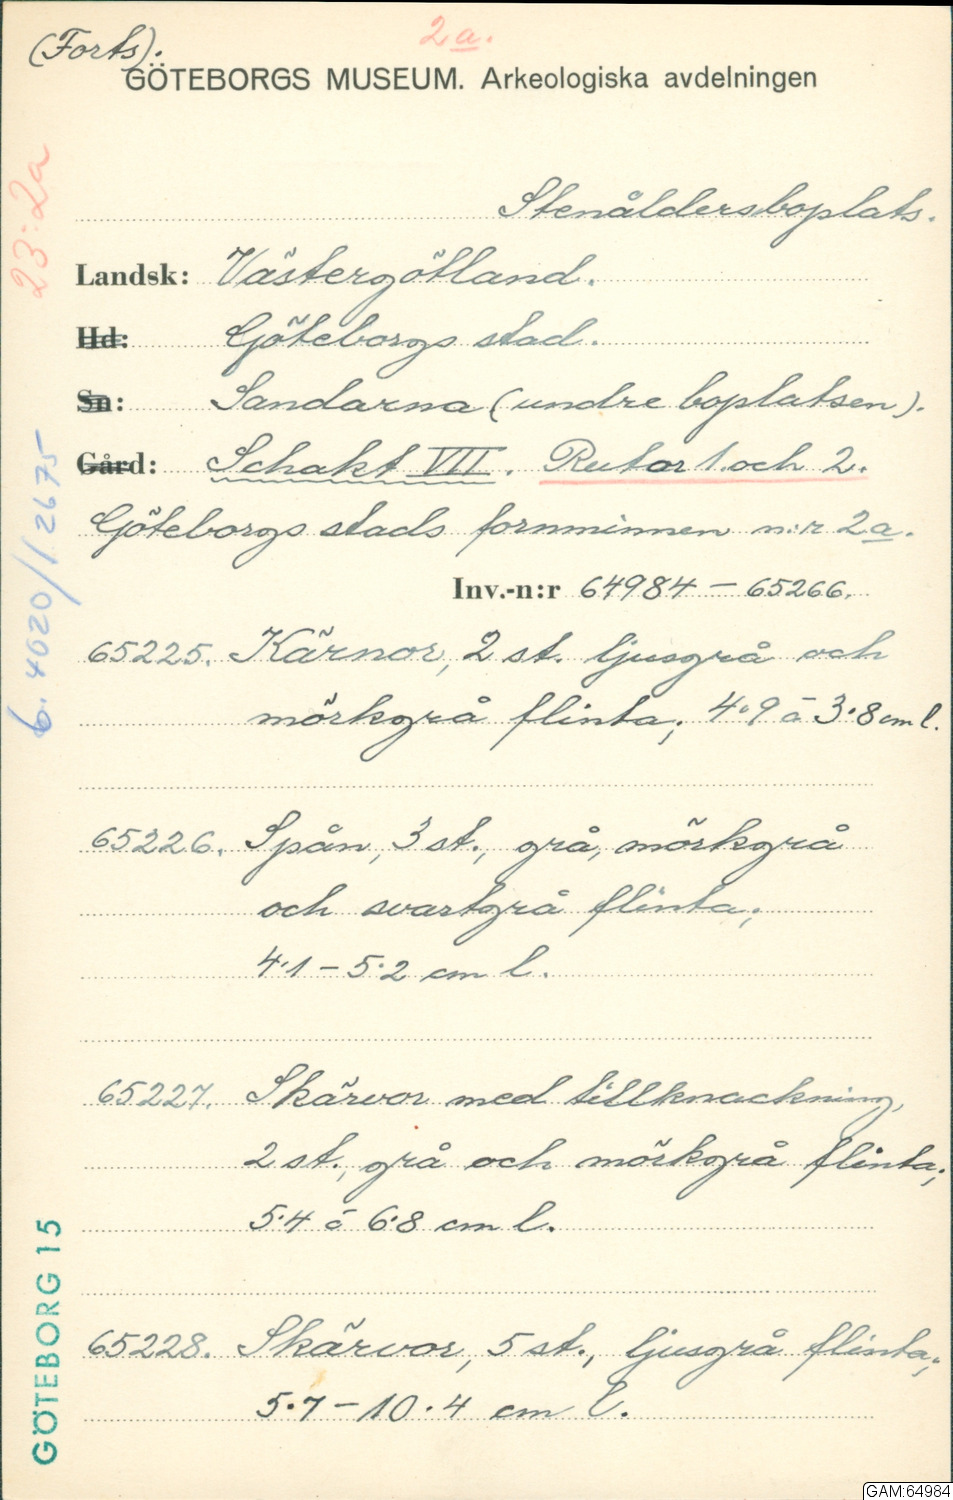 (Forts).
2a.
GÖTEBORGS MUSEUM. Arkeologiska avdelningen
23:2a
Stenåldersboplats.
Landsk: Västergötland.
Hd: Göteborgs stad.
Sn: Sandarna (undre boplatsen).
Gård: Schakt VII. Rutor 1. och 2.
Göteborgs stads fornminnen n:r 2a.
Inv.-n:r 64984 — 65266.
65225. Kärnor, 2 st. ljusgrå och
mörkgrå flinta; 4·9 à 3·8 cm l.
65226. Spån, 3 st., grå, mörkgrå
och svartgrå flinta;
4·1 – 5·2 cm l.
65227. Skärvor med tillknackning,
2 st., grå och mörkgrå flinta;
5·4 à 6·8 cm l.
65228. Skärvor, 5 st., ljusgrå flinta;
5·7 – 10·4 cm l.
GÖTEBORG 15
GAM:64984